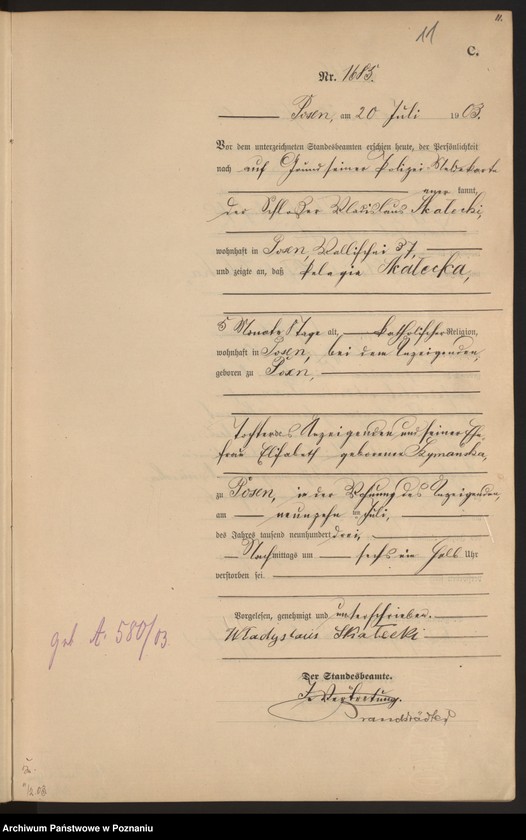 11.
11
C.
Nr. 1685.
Posen, am 20 Juli 1903.
Vor dem unterzeichneten Standesbeamten erschien heute, der Persönlichkeit
nach auf Grund seiner Polizei-Meldekarte
kannt,
der Schlosser Wladislaus Skalecki,
wohnhaft in Posen, Wallischei 37,
und zeigte an, daß Pelagia Skałecka,
5 Monate Tage alt, katholischer Religion,
wohnhaft in Posen, bei dem Anzeigenden,
geboren zu Posen,
Tochter des Anzeigenden und seiner Ehe-
frau Elisabeth geborenen Szymańska,
zu Posen, in der Wohnung des Anzeigenden,
am neunzehn ten Juli,
des Jahres tausend neunhundert drei,
Nachmittags um sechs ein halb Uhr
verstorben sei.
Vorgelesen, genehmigt und unterschrieben.
Władysław Skałecki
Der Standesbeamte.
In Vertretung.
geb A. 580/03
Archiwum Państwowe w Poznaniu